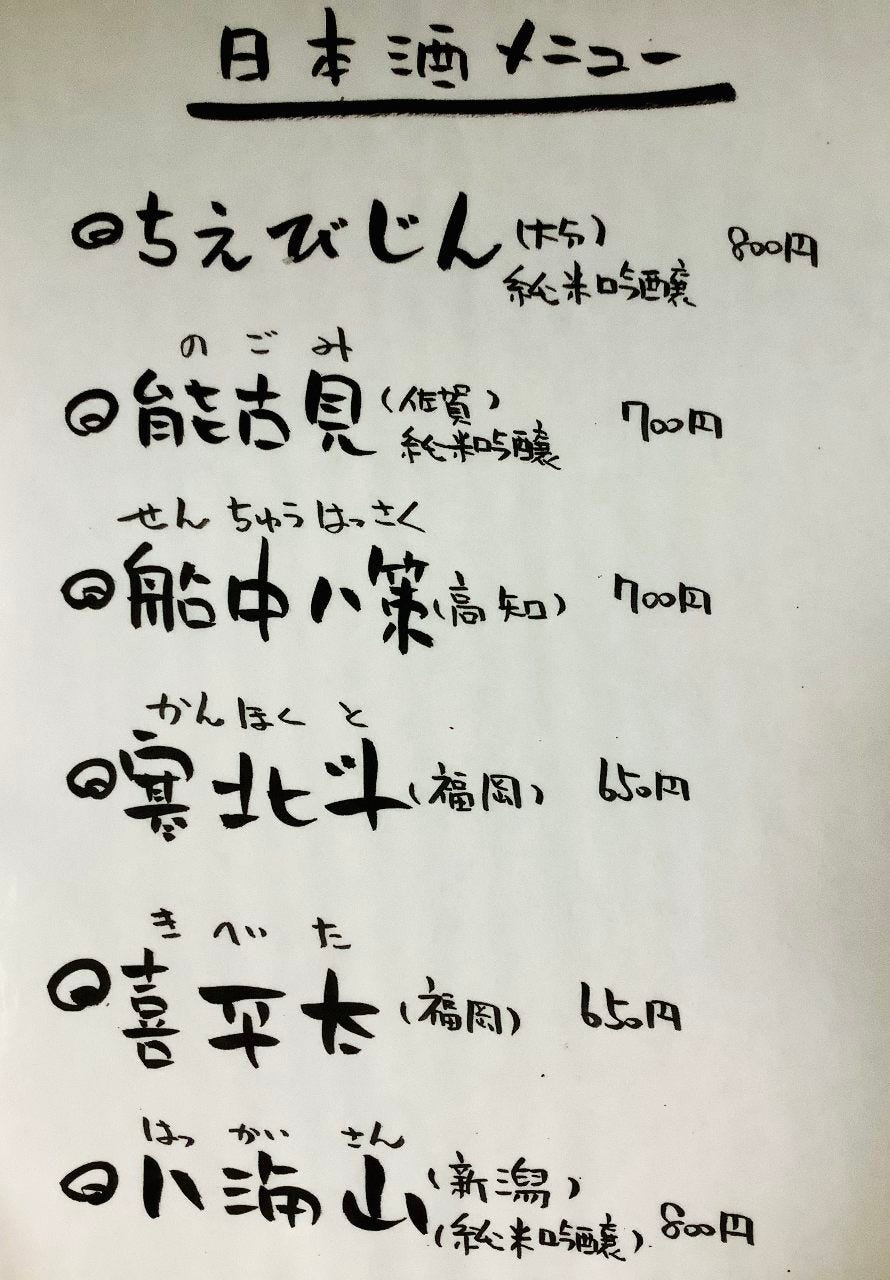 日本酒メニュー
ちえびじん(大分) 800円
純米吟醸
のごみ
能古見(佐賀) 700円
純米吟醸
せんちゅうはっさく
船中八策(高知) 700円
かんほくと
寒北斗(福岡) 650円
きへいた
喜平太(福岡) 650円
はっかいさん
八海山(新潟)
(純米吟醸) 800円